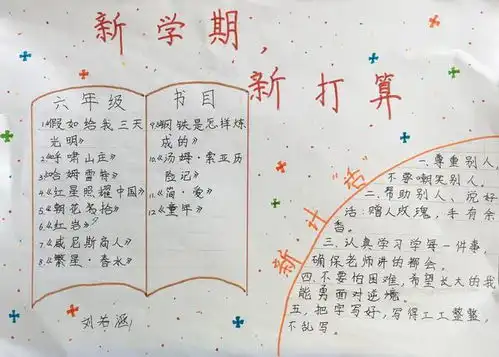 新学期，
新打算
六年级
书目
1.《假如给我三天
光明》
2.《呼啸山庄》
3.《哈姆雷特》
4.《红星照耀中国》
5.《朝花夕拾》
6.《红岩》
7.《威尼斯商人》
8.《繁星·春水》
9.《钢铁是怎样炼
成的》
10.《汤姆·索亚历
险记》
11.《简·爱》
12.《童年》
刘若涵
新计"话"
一.尊重别人,
不要嘲笑别人。
二.帮助别人、说好
话：赠人玫瑰，手有余
香。
三.认真学习学每一件事
确保老师讲的都会。
四.不要怕困难，希望长大的我
能勇面对逆境。
五.把字写好，写得工工整整，
不乱写。